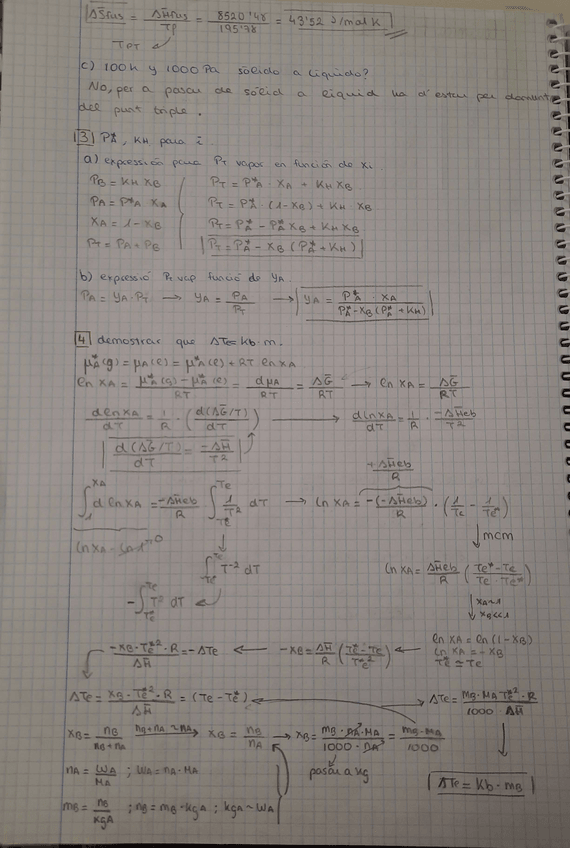 ΔS̄fus = ΔH̄fus / Tp = 8520'48 / 195'78 = 43'52 J/mol K
TPT
c) 100K y 1000 Pa sólido a líquido?
No, per a pasar de sòlid a liquid ha d'estar per damunt
del punt triple.
3 P*A, KH para i
a) expressión para PT vapor en función de xi
PB = KH XB PT = P*A · XA + KH XB
PA = P*A XA PT = P*A · (1-XB) + KH · XB
XA = 1-XB PT = P*A - P*A XB + KH XB
PT = PA + PB PT = P*A - XB (P*A + KH)
b) expressió PT vap funció de YA
PA = YA · PT → YA = PA / PT → YA = P*A · XA / P*A - XB (P*A + KH)
4 demostrar que ΔTe = Kb · m.
μ*A(g) = μA(l) = μ*A(l) + RT ln XA
ln XA = μ*A(g) - μ*A(l) / RT = dμA / RT = ΔḠ / RT → ln XA = ΔḠ / RT
d ln XA / dT = 1/R · (d(ΔḠ/T) / dT) → d ln XA / dT = 1/R · -ΔH̄eb / T²
d(ΔḠ/T) / dT = -ΔH̄ / T²
+ΔH̄eb / R
∫₁^XA d ln XA = -ΔH̄eb / R ∫Te*^Te 1/T² dT → ln XA = -(-ΔH̄eb) / R · (1/Te - 1/Te*)
ln XA - ln 1 = 0
mcm
∫Te*^Te T⁻² dT
ln XA = ΔH̄eb / R (Te* - Te / Te · Te*)
-∫Te*^Te T² dT
XA≈1
XB<<1
ln XA = ln (1-XB)
-XB · Te*² · R / ΔH̄ = -ΔTe ← -XB = ΔH̄ / R (Te* - Te / Te*²) ← ln XA = -XB
Te* ≃ Te
ΔTe = XB · Te*² · R / ΔH̄ = (Te - Te*) ΔTe = mB · MA Te*² · R / 1000 · ΔH̄
XB = nB / nB + nA nB + nA ≈ nA → XB = nB / nA → XB = mB · nA · MA / 1000 · nA = mB · MA / 1000
pasar a kg
nA = WA / MA ; WA = nA · MA
ΔTe = Kb · mB
mB = nB / kgA ; nB = mB · kgA ; kgA ~ WA